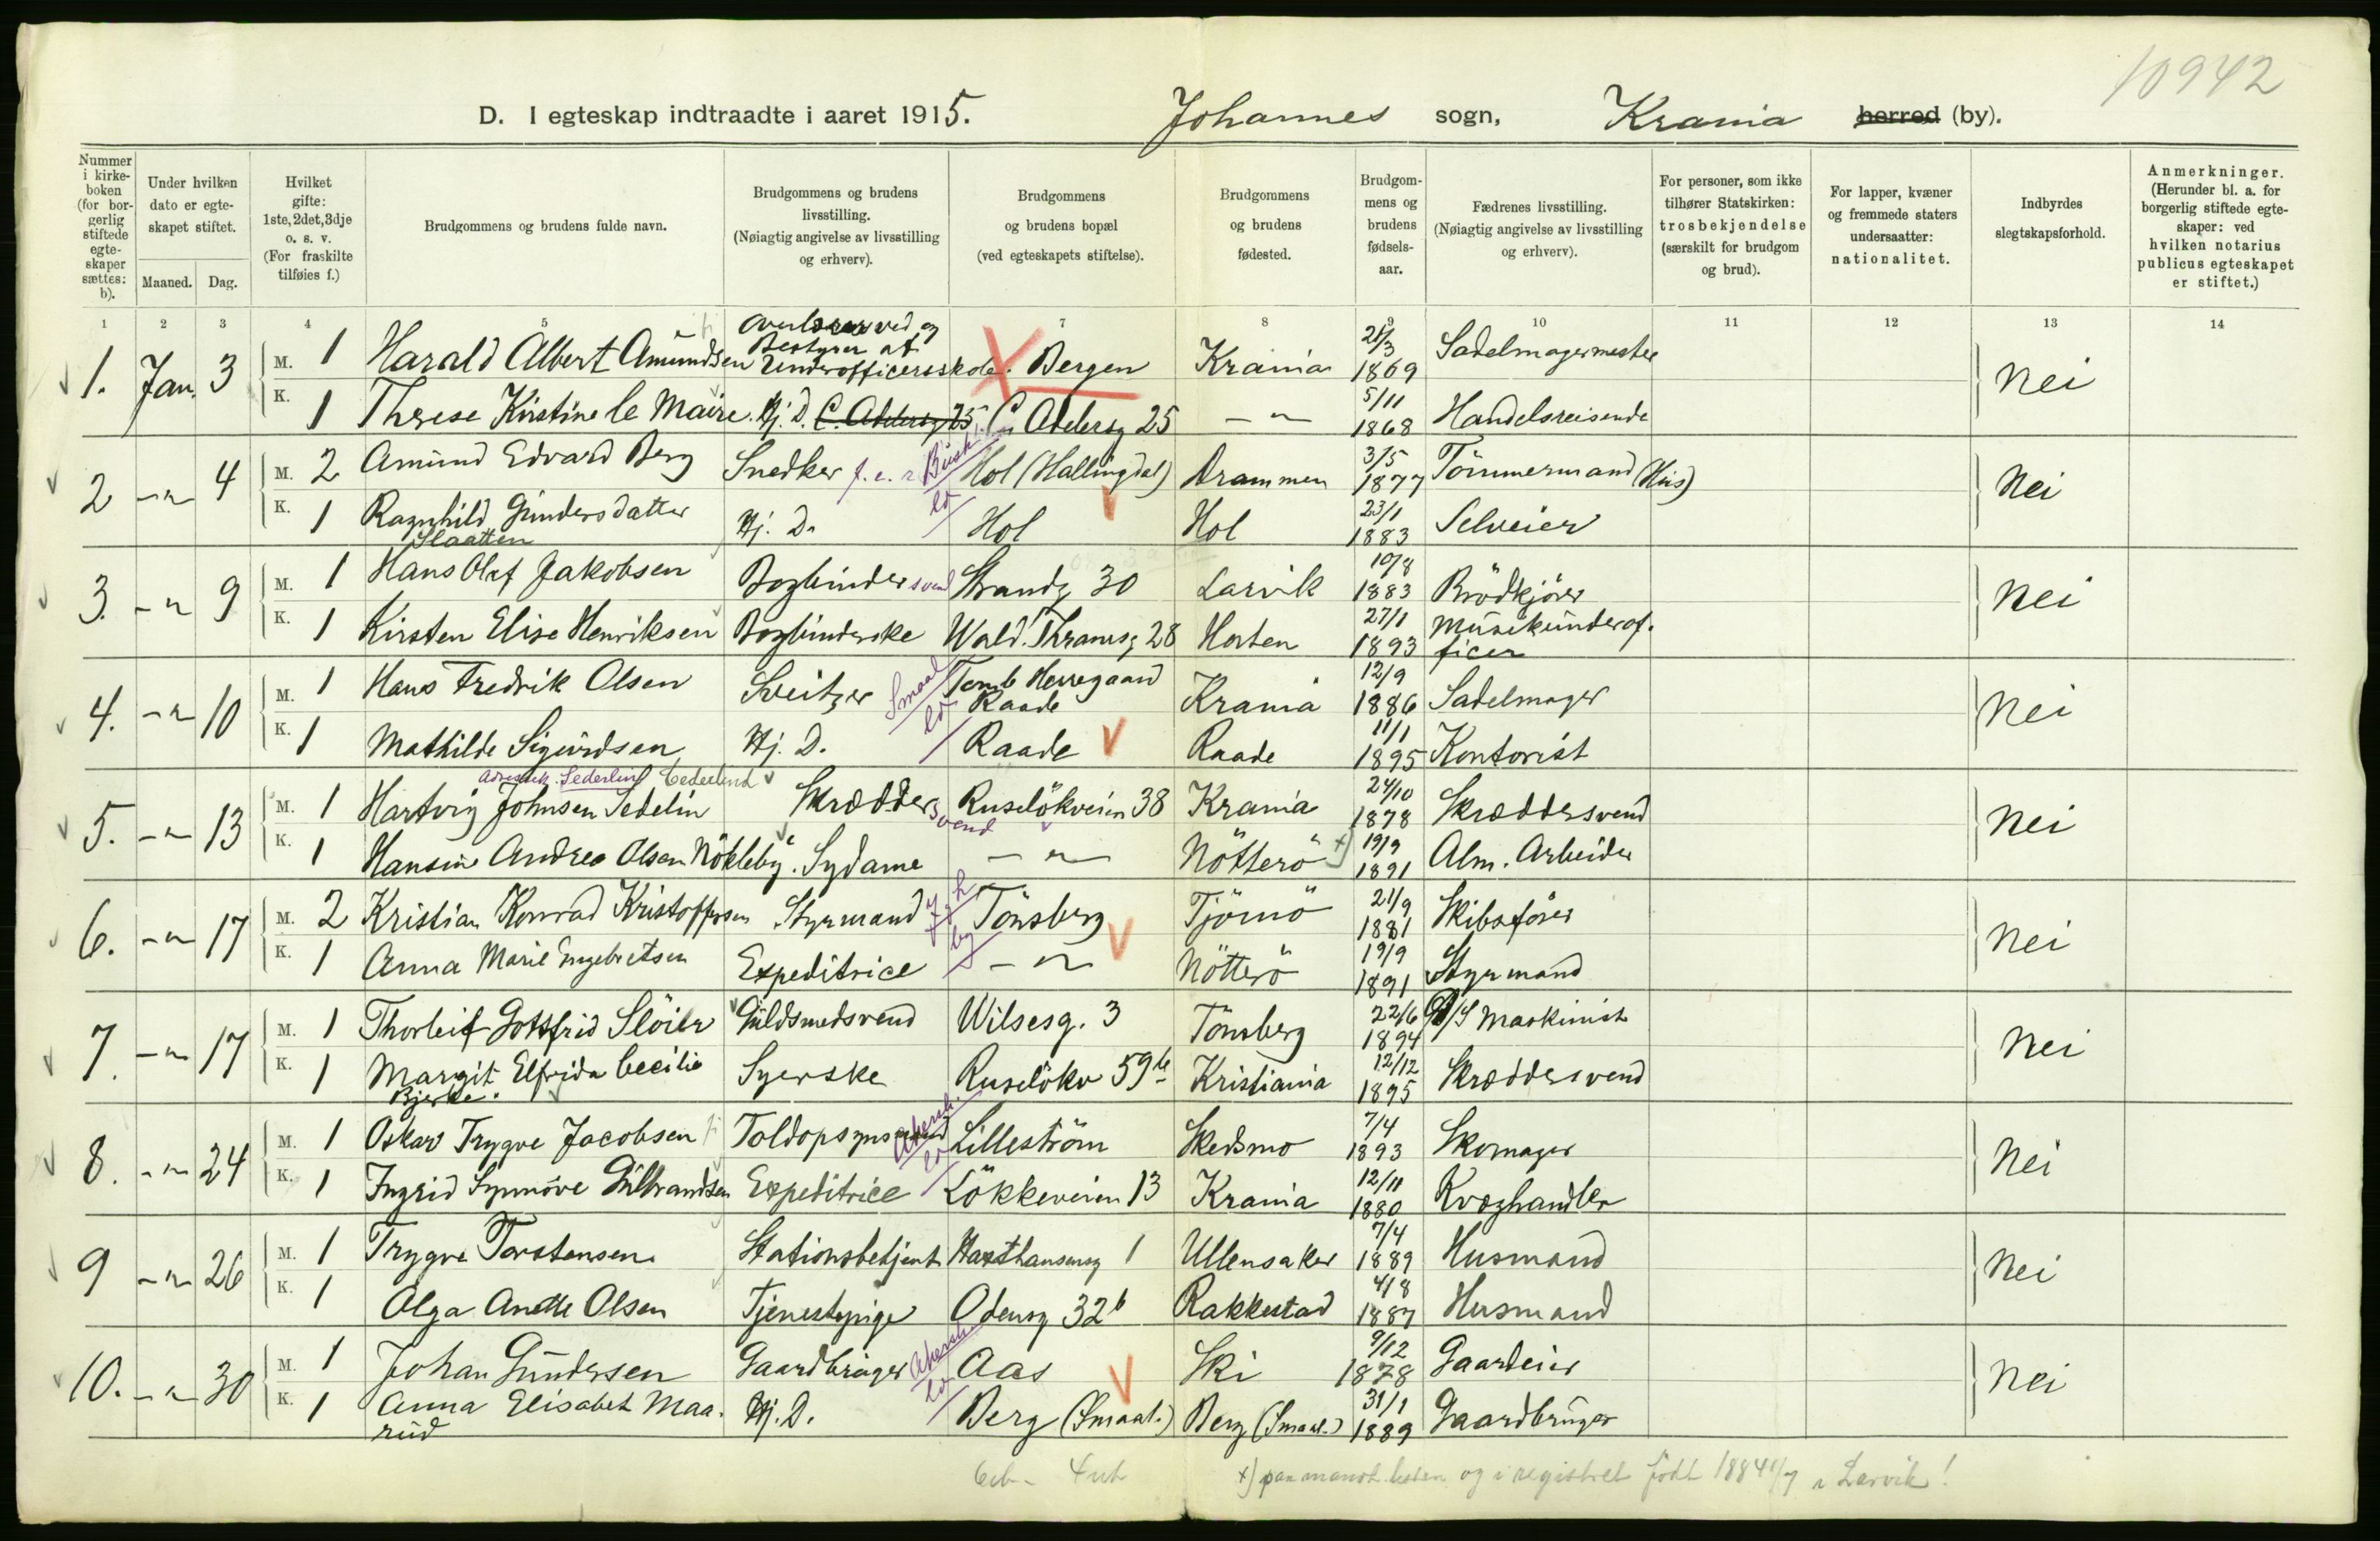 10942
D. I egteskap indtraadte i aaret 1915. Johannes sogn, Krania herred (by).
Nummer i kirkeboken (for borgerlig stiftede egteskaper sættes: b).
Under hvilken dato er egteskapet stiftet. Maaned. Dag.
Hvilket gifte: 1ste, 2det, 3dje o. s. v. (For fraskilte tilføies f.)
Brudgommens og brudens fulde navn.
Brudgommens og brudens livsstilling. (Nøiagtig angivelse av livsstilling og erhverv).
Brudgommens og brudens bopæl (ved egteskapets stiftelse).
Brudgommens og brudens fødested.
Brudgommens og brudens fødselsaar.
Fædrenes livsstilling. (Nøiagtig angivelse av livsstilling og erhverv).
For personer, som ikke tilhører Statskirken: trosbekjendelse (særskilt for brudgom og brud).
For lapper, kvæner og fremmede staters undersaatter: nationalitet.
Indbyrdes slegtskapsforhold.
Anmerkninger. (Herunder bl. a. for borgerlig stiftede egteskaper: ved hvilken notarius publicus egteskapet er stiftet.)
1 2 3 4 5 7 8 9 10 11 12 13 14
1. Jan. 3 M. 1 Harald Albert Amundsen ved og Bestyrer af Underofficersskole. Bergen Krania 21/3 1869 Sadelmagermester Nei
K. 1 Therese Kirstine le Maire Hj. D. C. Adelersg 25 C. Adelersg 25 - " - 5/11 1868 Handelsreisende
2 - " - 4 M. 2 Amund Edvard Berg Snedker f. e. r Busk. Hol (Hallingdal) Drammen 3/5 1877 Tömmermand (Hus) Nei
K. 1 Ragnhild Gundersdatter Slaatten Hj. D. Hol Hol 23/1 1883 Selveier
3. - " - 9 M. 1 Hans Olaf Jakobsen Bogbindersvend Strandg 30 Larvik 10/8 1883 Brödkjörer Nei
K. 1 Kirsten Elise Henriksen Bogbinderske Wald. Thranesg 28 Horten 27/1 1893 Musikunderofficer
4. - " - 10 M. 1 Hans Fredrik Olsen Sveitzer Smaal Tomb Herregaard Raade Krania 12/9 1886 Sadelmager Nei
K. 1 Mathilde Sigurdsen Hj. D. Raade Raade 11/1 1895 Kontorist
Adressek. Sederlind Cederlund
5. - " - 13 M. 1 Hartvig Johnsen Sedelin Skræddersvend Ruselökveien 38 Krania 24/10 1878 Skræddersvend Nei
K. 1 Hansine Andrea Olsen Nökleby. Sydame - " - Nötterö x) 19/9 1891 Alm. Arbeider
6. - " - 17 M. 2 Kristian Konrad Kristoffersen Styrmand Tönsberg Tjömö 21/9 1881 Skibsförer Nei
K. 1 Anna Marie Engebretsen Expeditrice - " - Nötterö 19/9 1891 Styrmand
7. - " - 17 M. 1 Thorleif Gottfrid Slöier Guldsmedsvend Wilsesg. 3 Tönsberg 22/6 1894 D/S Maskinist Nei
K. 1 Margit Elfrida Cecilie Bjerke. Syerske Ruselökv 59b Kristiania 12/12 1895 Skræddersvend
8. - " - 24 M. 1 Oskar Trygve Jacobsen Toldopsynsmand Akersh. Lilleström Skedsmo 7/4 1893 Skomager Nei
K. 1 Ingrid Synnöve Gulbrandsen Expeditrice Lökkeveien 13 Krania 12/11 1880 Kvæghandler
9 - " - 26 M. 1 Trygve Torstensen Stationsbetjent Haxthausensg 1 Ullensaker 7/4 1889 Husmand Nei
K. 1 Olga Anette Olsen Tjenestepige Odensg 32b Rakkestad 4/8 1887 Husmand
10. - " - 30 M. 1 Johan Gundersen Gaardbruger Akersh. Aas Ski 9/12 1878 Gaardeier Nei
K. 1 Anna Elisabet Maarud Hj. D. Berg (Smaal.) Berg (Smaal.) 31/1 1889 Gaardbruger
6eb - 4ut x) paa mandt.listen og i registret födt 1884 11/7 i Larvik!